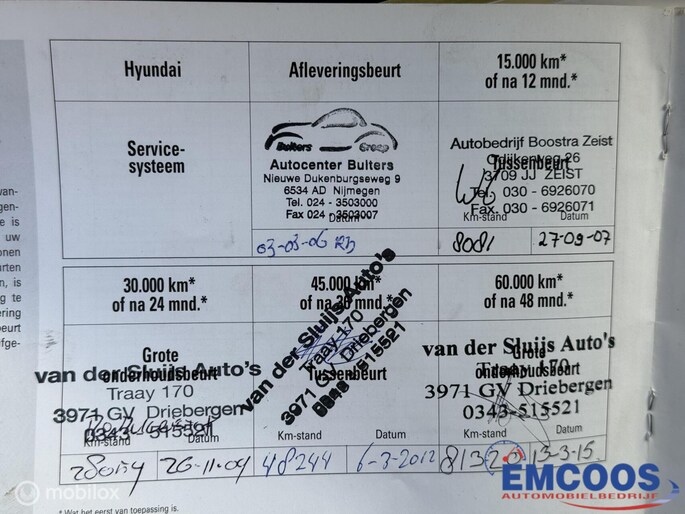 Hyundai
Afleveringsbeurt
15.000 km*
of na 12 mnd.*
Service-
systeem
Bulters Groep
Autocenter Bulters
Nieuwe Dukenburgseweg 9
6534 AD Nijmegen
Tel. 024 - 3503000
Fax 024 - 3503007
Datum
03-03-06
Autobedrijf Boostra Zeist
Odijkerweg 26
Tussenbeurt
3709 JJ ZEIST
Tel. 030 - 6926070
Fax. 030 - 6926071
Km-stand Datum
8081 27-09-07
30.000 km*
of na 24 mnd.*
Grote
onderhoudsbeurt
van der Sluijs Auto's
Traay 170
3971 GV Driebergen
0343-515521
Km-stand Datum
26-11-09
45.000 km*
of na 36 mnd.*
Tussenbeurt
van der Sluijs Auto's
Traay 170
3971 GV Driebergen
0343-515521
Km-stand Datum
48244 6-3-2012
60.000 km*
of na 48 mnd.*
Grote
onderhoudsbeurt
van der Sluijs Auto's
Traay 170
3971 GV Driebergen
0343-515521
Km-stand Datum
13-3-15
* Wat het eerst van toepassing is.
van-
gen-
e is
uw
onen
arten
n, is
g te
ering
beurt
fge-
mobilox
EMCOOS
AUTOMOBIELBEDRIJF